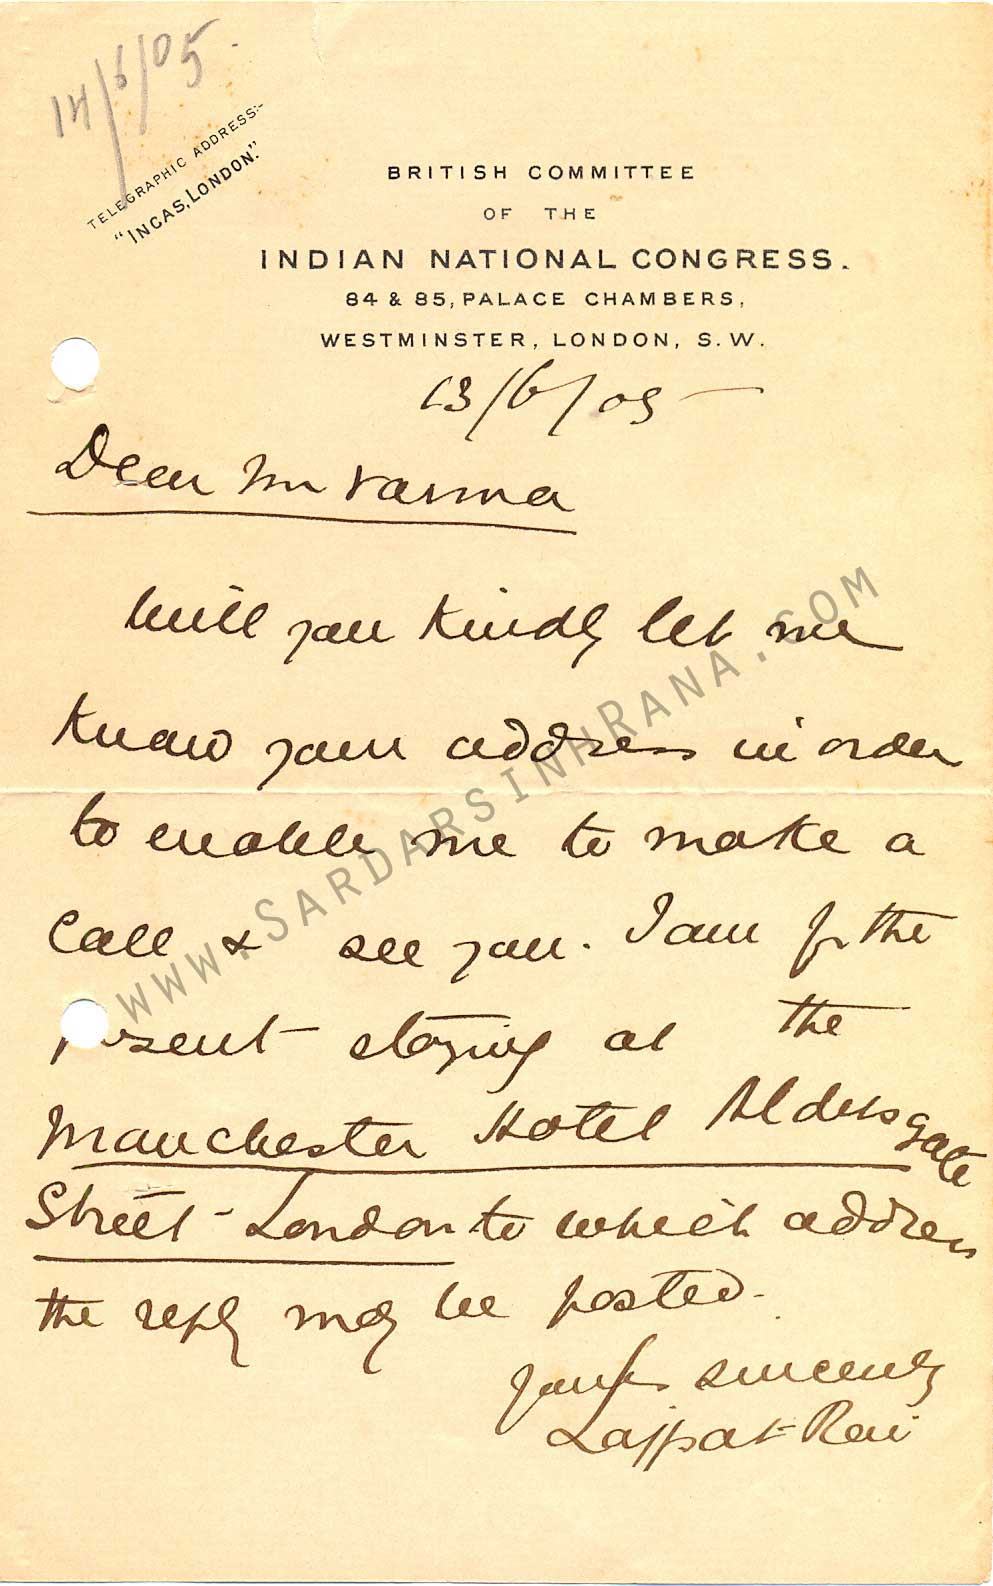 14/6/05.
TELEGRAPHIC ADDRESS:-
"INCAS, LONDON."
BRITISH COMMITTEE
OF THE
INDIAN NATIONAL CONGRESS.
84 & 85, PALACE CHAMBERS,
WESTMINSTER, LONDON, S.W.
13/6/05
Dear Mr Varma
Will you kindly let me
know your address in order
to enable me to make a
call & see you. I am for the
present staying at the
Manchester Hotel Aldersgate
Street - London to which address
the reply may be posted.
Yours sincerely
Lajpat Rai
www.SardarsinhRana.com